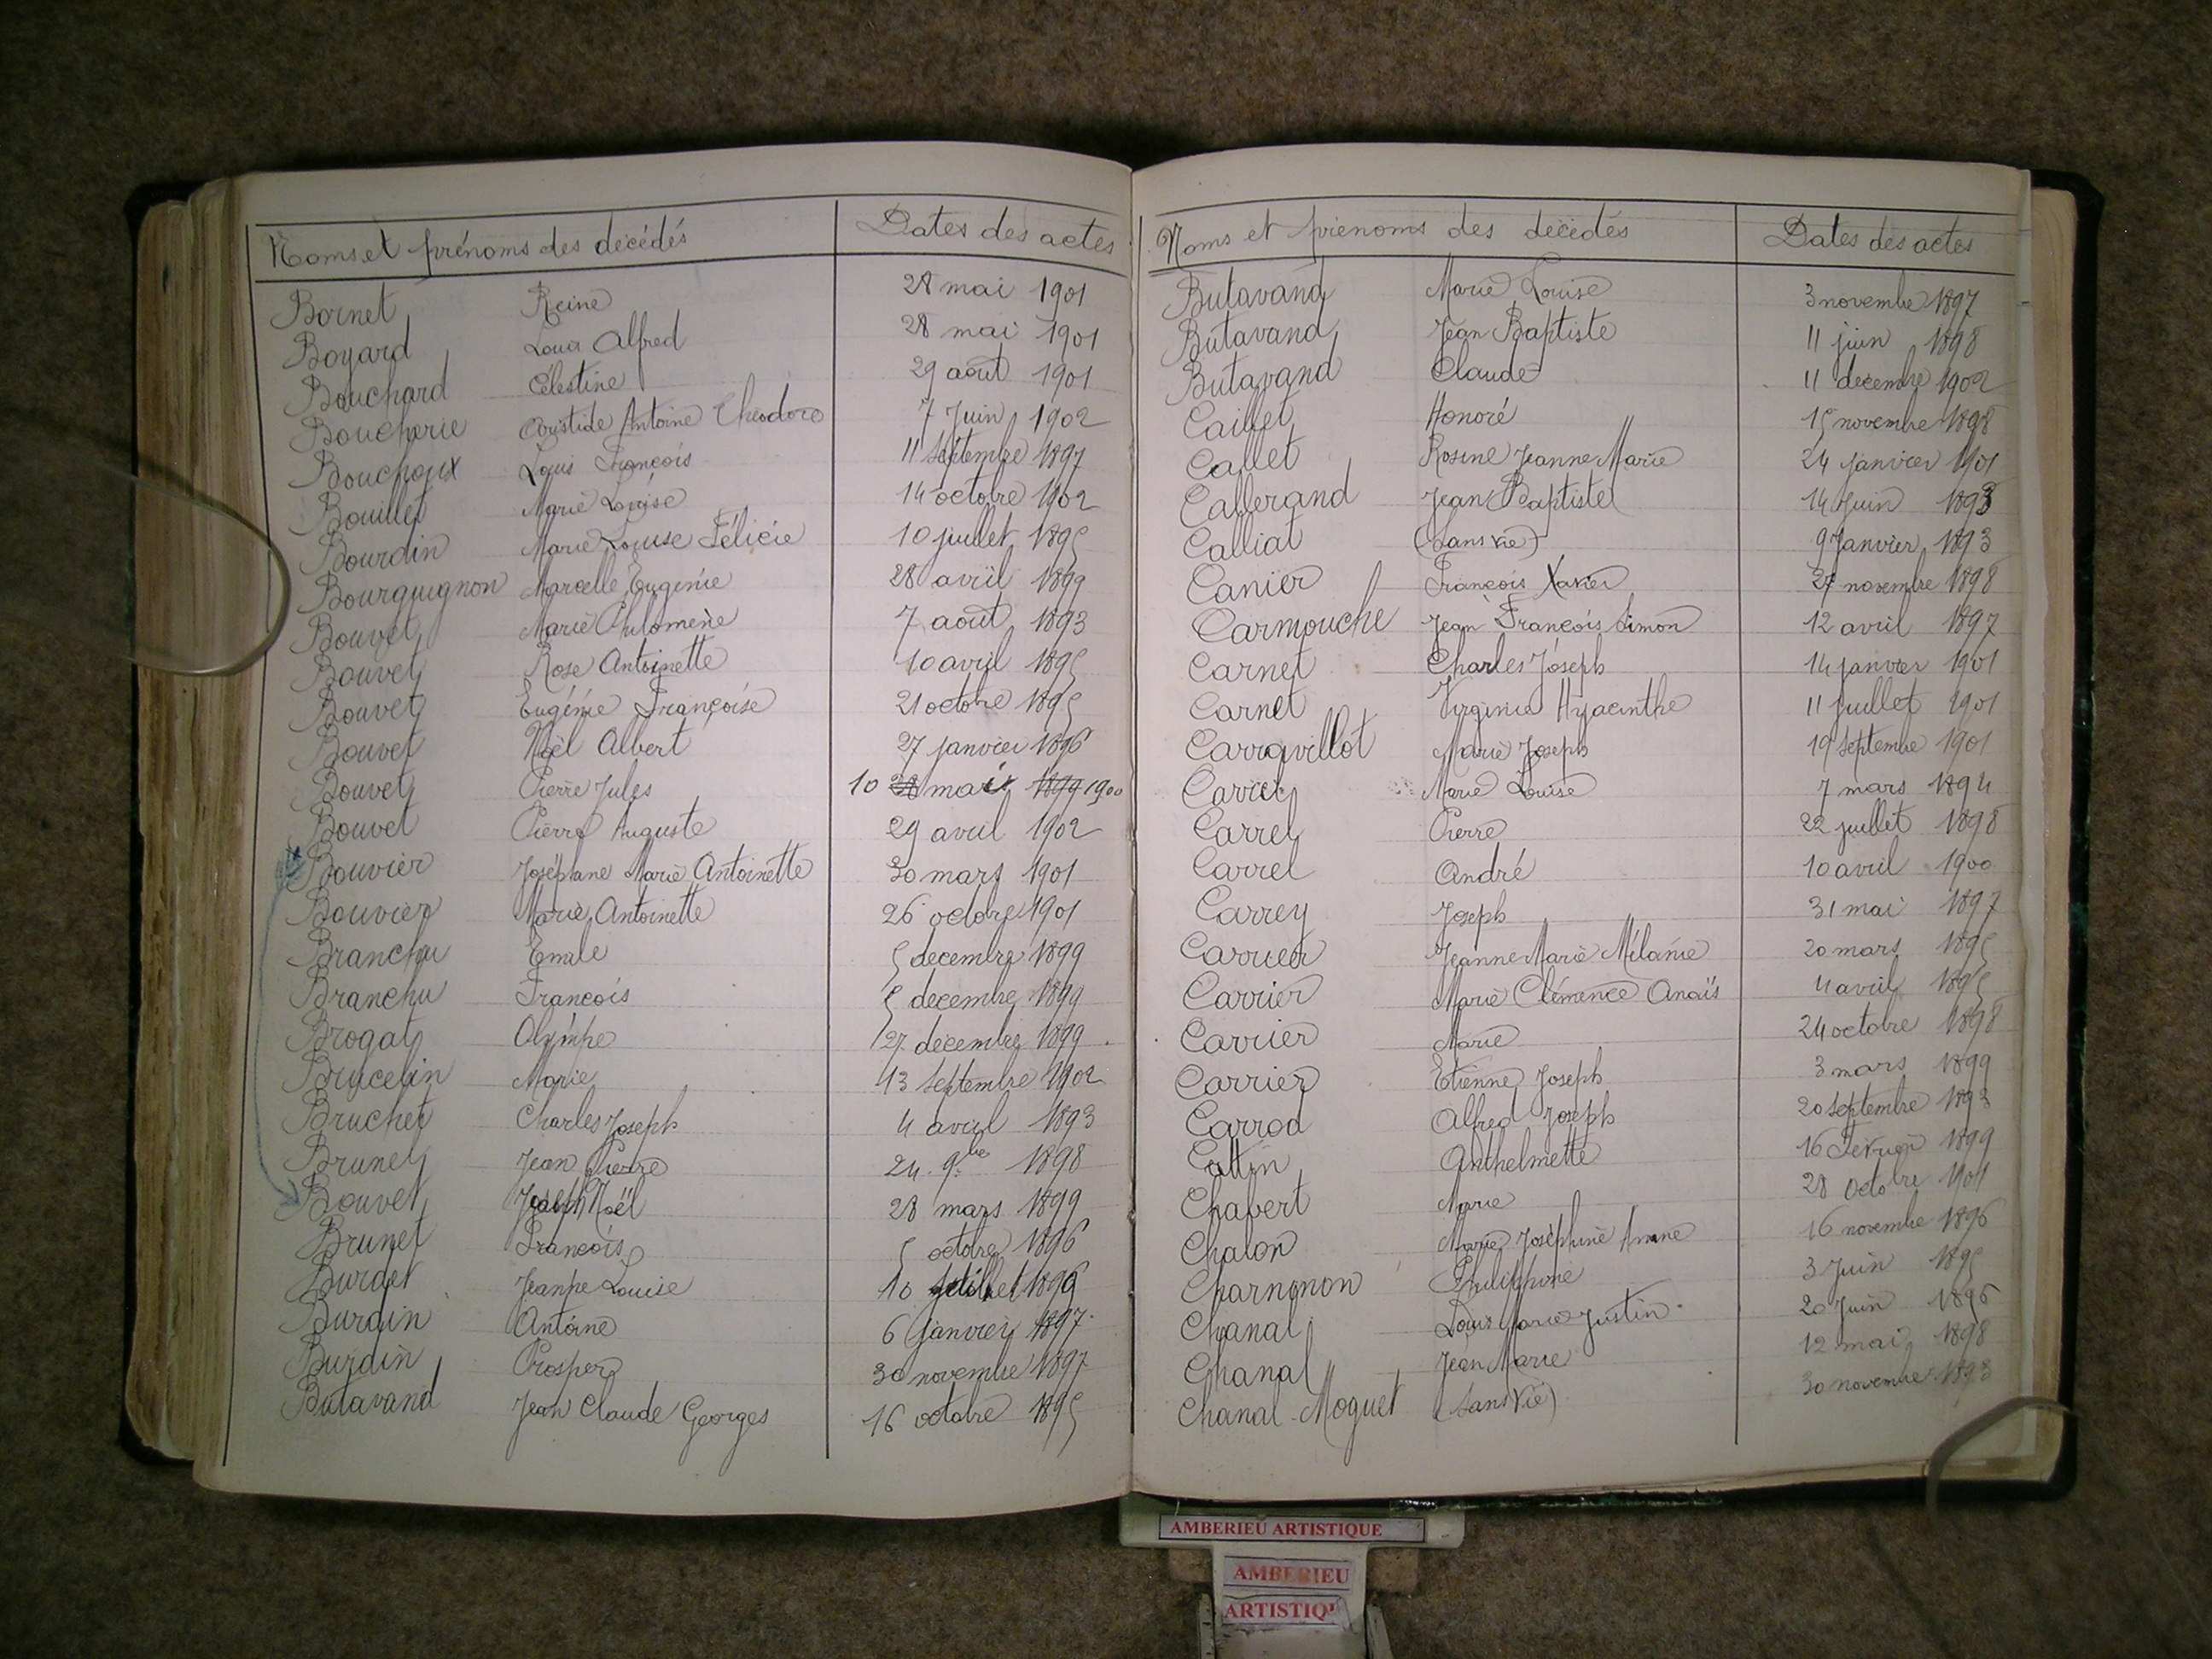 Noms et prénoms des décédés Dates des actes
Bornet Reine 28 mai 1901
Boyard Louis Alfred 28 mai 1901
Bouchard Célestine 29 août 1901
Boucherie Aristide Antoine Théodore 7 Juin 1902
Bouchoux Louis François 11 septembre 1897
Bouillet Marie Louise 14 octobre 1902
Bourdin Marie Louise Félicie 10 juillet 1895
Bourguignon Marcelle Eugénie 28 avril 1899
Bouvet Marie Philomène 7 août 1893
Bouvet Rose Antoinette 10 avril 1895
Bouvet Eugénie Françoise 21 octobre 1895
Bouvet Noël Albert 27 janvier 1896
Bouvet Pierre Jules 10 28 mai 1899 1900
Bouvet Pierre Auguste 29 avril 1902
Bouvier Joséphane Marie Antoinette 30 mars 1901
Bouvier Marie Antoinette 26 octobre 1901
Branchu Emile 5 décembre 1899
Branchu François 5 décembre 1899
Brogat Olympe 27 décembre 1899
Brucelin Marie 13 septembre 1902
Bruchet Charles Joseph 4 avril 1893
Brunet Jean Pierre 24 9bre 1898
Bouvet Joseph Noël 28 mars 1899
Brunet François 5 octobre 1896
Burdet Jeanne Louise 10 juillet 1896
Burdin Antoine 6 janvier 1897
Burdin Prosper 30 novembre 1897
Butavand Jean Claude Georges 16 octobre 1895
Noms et prénoms des décédés Dates des actes
Butavand Marie Louise 3 novembre 1897
Butavand Jean Baptiste 11 juin 1898
Butavand Claude 11 décembre 1902
Caillet Honoré 15 novembre 1898
Callet Rosine Jeanne Marie 24 janvier 1901
Callerand Jean Baptiste 14 Juin 1893
Calliat (Sans vie) 9 Janvier 1893
Canier François Xavier 27 novembre 1898
Carmouche Jean François Simon 12 avril 1897
Carnet Charles Joseph 14 janvier 1901
Carnet Virginie Hyacinthe 11 juillet 1901
Carravillot Marie Joseph 19 septembre 1901
Carrel Marie Louise 7 mars 1894
Carrel Pierre 22 juillet 1898
Carrel André 10 avril 1900
Carrey Joseph 31 mai 1897
Carrier Jeanne Marie Mélanie 20 mars 1895
Carrier Marie Clémence Anaïs 4 avril 1895
Carrier Marie 24 octobre 1898
Carrier Etienne Joseph 3 mars 1899
Carrod Alfred Joseph 20 septembre 1893
Cattin Anthelmette 16 Février 1899
Chabert Marie 28 octobre 1901
Chalon Marie Joséphine 16 novembre 1896
Charnonon Philippine 3 Juin 1895
Chanal Louis Marie Justin 20 Juin 1896
Chanal Jean Marie 12 mai 1898
Chanal-Moguet (Sans Vie) 30 novembre 1893
AMBERIEU ARTISTIQUE
AMBERIEU
ARTISTIQU